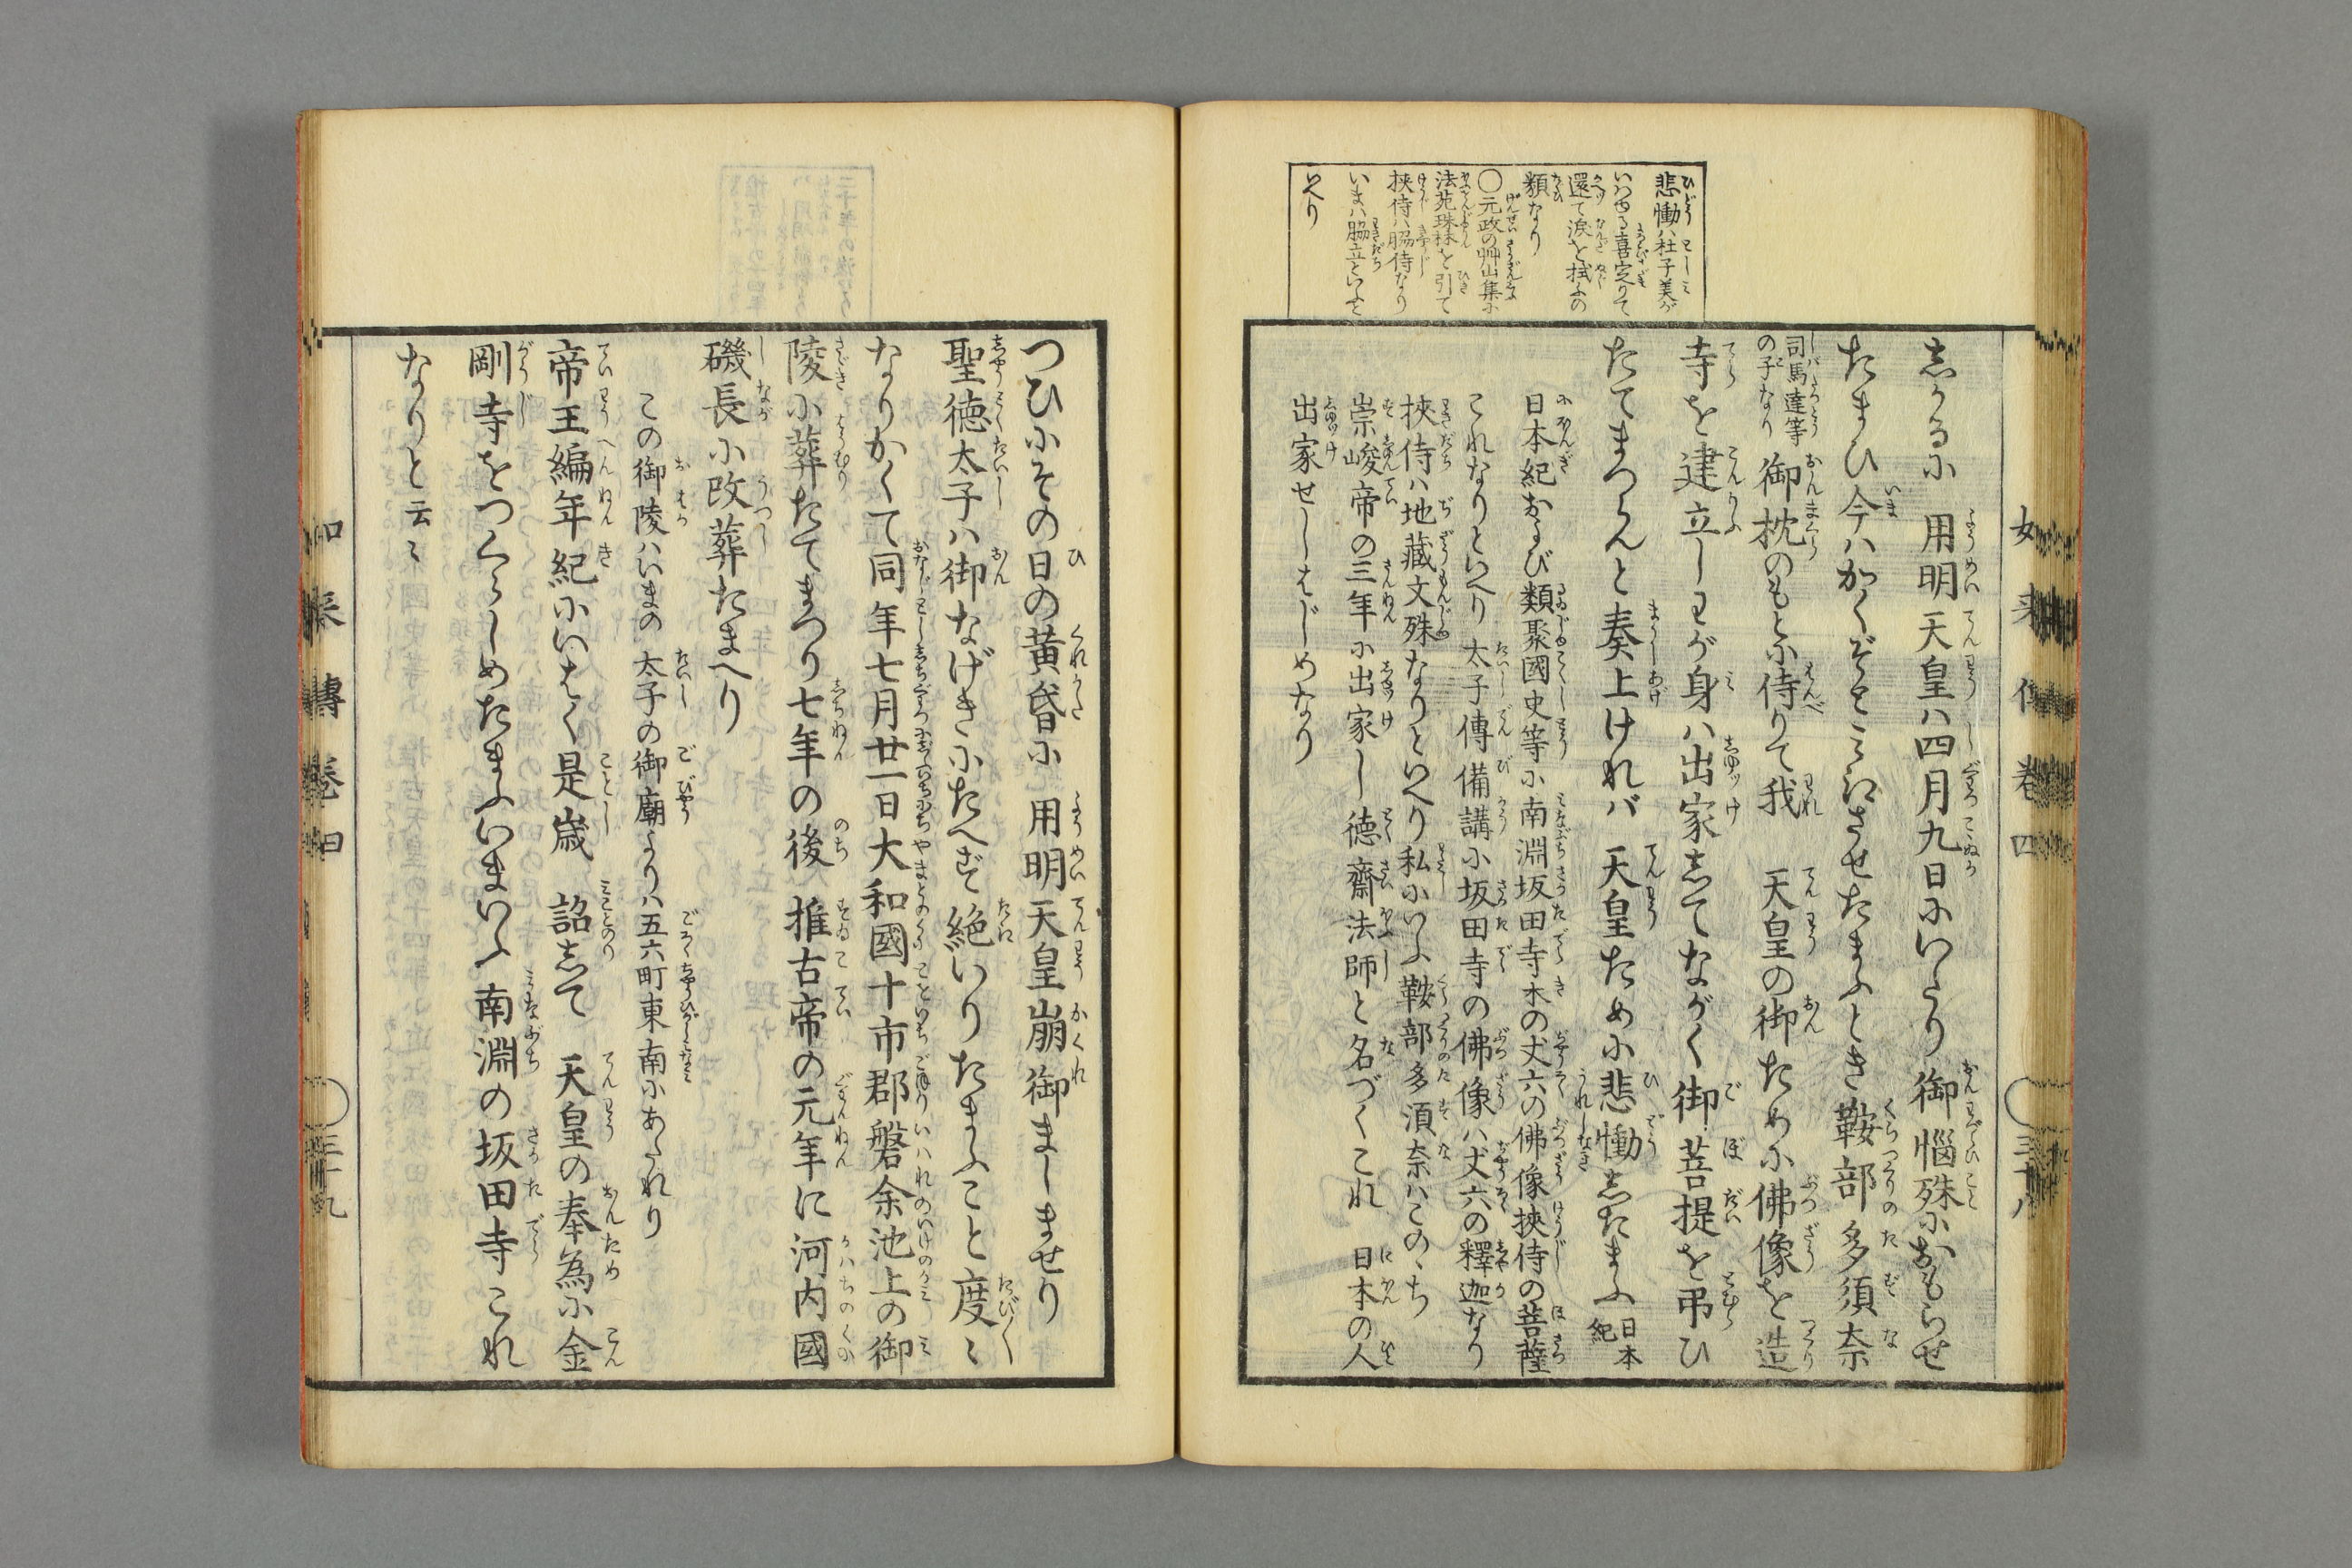 如来傳巻四
三十八
悲慟ハ杜子美が
いはゆる喜定りて
還て涙を拭ふの
類なり
〇元政の艸山集に
法苑珠林を引て
挾侍ハ脇侍なり
いまハ脇立といふと
いへり
志かるに 用明天皇ハ四月九日にいたり御惱殊におもらせ
たまひ今ハかくぞとミえさせたまふとき鞍部多須奈
司馬達等
の子なり
御枕のもとに侍りて我 天皇の御ために佛像を造
寺を建立しわが身ハ出家志てながく御菩提を弔ひ
たてまつらんと奏上けれバ 天皇ために悲慟志たまふ
日本
紀
日本紀および類聚國史等に南淵坂田寺木の丈六の佛像挾侍の菩薩
これなりといへり 太子傳備講に坂田寺の佛像ハ丈六の釋迦なり
挾侍ハ地藏文殊なりといへり私にいふ鞍部多須奈ハこのゝち
崇峻帝の三年に出家し徳齋法師と名づくこれ 日本の人
出家せしはじめなり
つひにその日の黄昏に 用明天皇崩御ましませり
聖徳太子ハ御なげきにたへず絶いりたまふこと度〻
なりかくて同年七月廿一日大和國十市郡磐余池上の御
陵に葬たてまつり七年の後 推古帝の元年に河内國
磯長に改葬たまへり
この御陵ハいまの 太子の御廟よりハ五六町東南にあたれり
帝王編年紀にいはく是歳 詔志て 天皇の奉為に金
剛寺をつくらしめたまふいまいふ南淵の坂田寺これ
なりと云〻
如来傳巻四
三十九